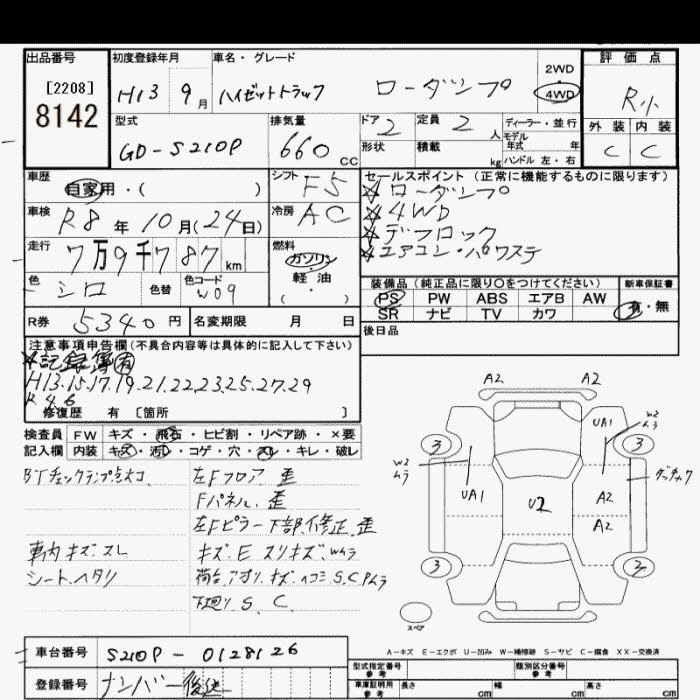 出品番号
[2208]
8142
初度登録年月
H13 9月
車名・グレード
ハイゼットトラック ローダンプ
2WD
4WD
評価点
R小
外装 内装
C C
型式
GD-S210P
排気量
660 CC
ドア 2
形状
定員 2 人
積載 kg
ディーラー・並行
モデル年式 年
ハンドル 左・右
車歴
自家用・( )
シフト F5
車検 R8年10月(24日)
冷房 AC
走行 7万9千787 km
燃料
ガソリン
軽油
( )
色 シロ 色替 色コード W09
セールスポイント(正常に機能するものに限ります)
☆ローダンプ
☆4WD
☆デフロック
☆エアコン・パワステ
装備品(純正品に限り○をつけてください)
新車保証書
PS PW ABS エアB AW
SR ナビ TV カワ
有・無
後日品
R券 5340円
名変期限 月 日
注意事項申告欄(不具合内容等は具体的に記入して下さい)
☆記録簿有
H13.15.17.19.21.22.23.25.27.29
R4.6
修復歴 有 〔箇所 〕
検査員記入欄
FW キズ・飛石・ヒビ割・リペア跡・×要
内装 キズ・汚レ・コゲ・穴・スレ・キレ・破レ
左Fフロア 歪
Fパネル.歪
左Fピラー下部.修正.歪
車内キズ.スレ
キズ.E スリキズ Wムラ
シート.ヘタリ
荷台.アオリ.キズ.ヘコミ S.C.Pムラ
下廻り S、C
A2 A2
UA1
W2ムラ
3 3
W2ムラ
UA1
U2
A2
A2
3
スペア
A-キズ E-エクボ U-凹み W-補修跡 S-サビ C-腐食 XX-交換済
車台番号 S210P-0128126
登録番号 ナンバー後送
型式指定番号 参考
類別区分番号 参考
車庫証明用 参考
長さ cm
幅 cm
高さ cm